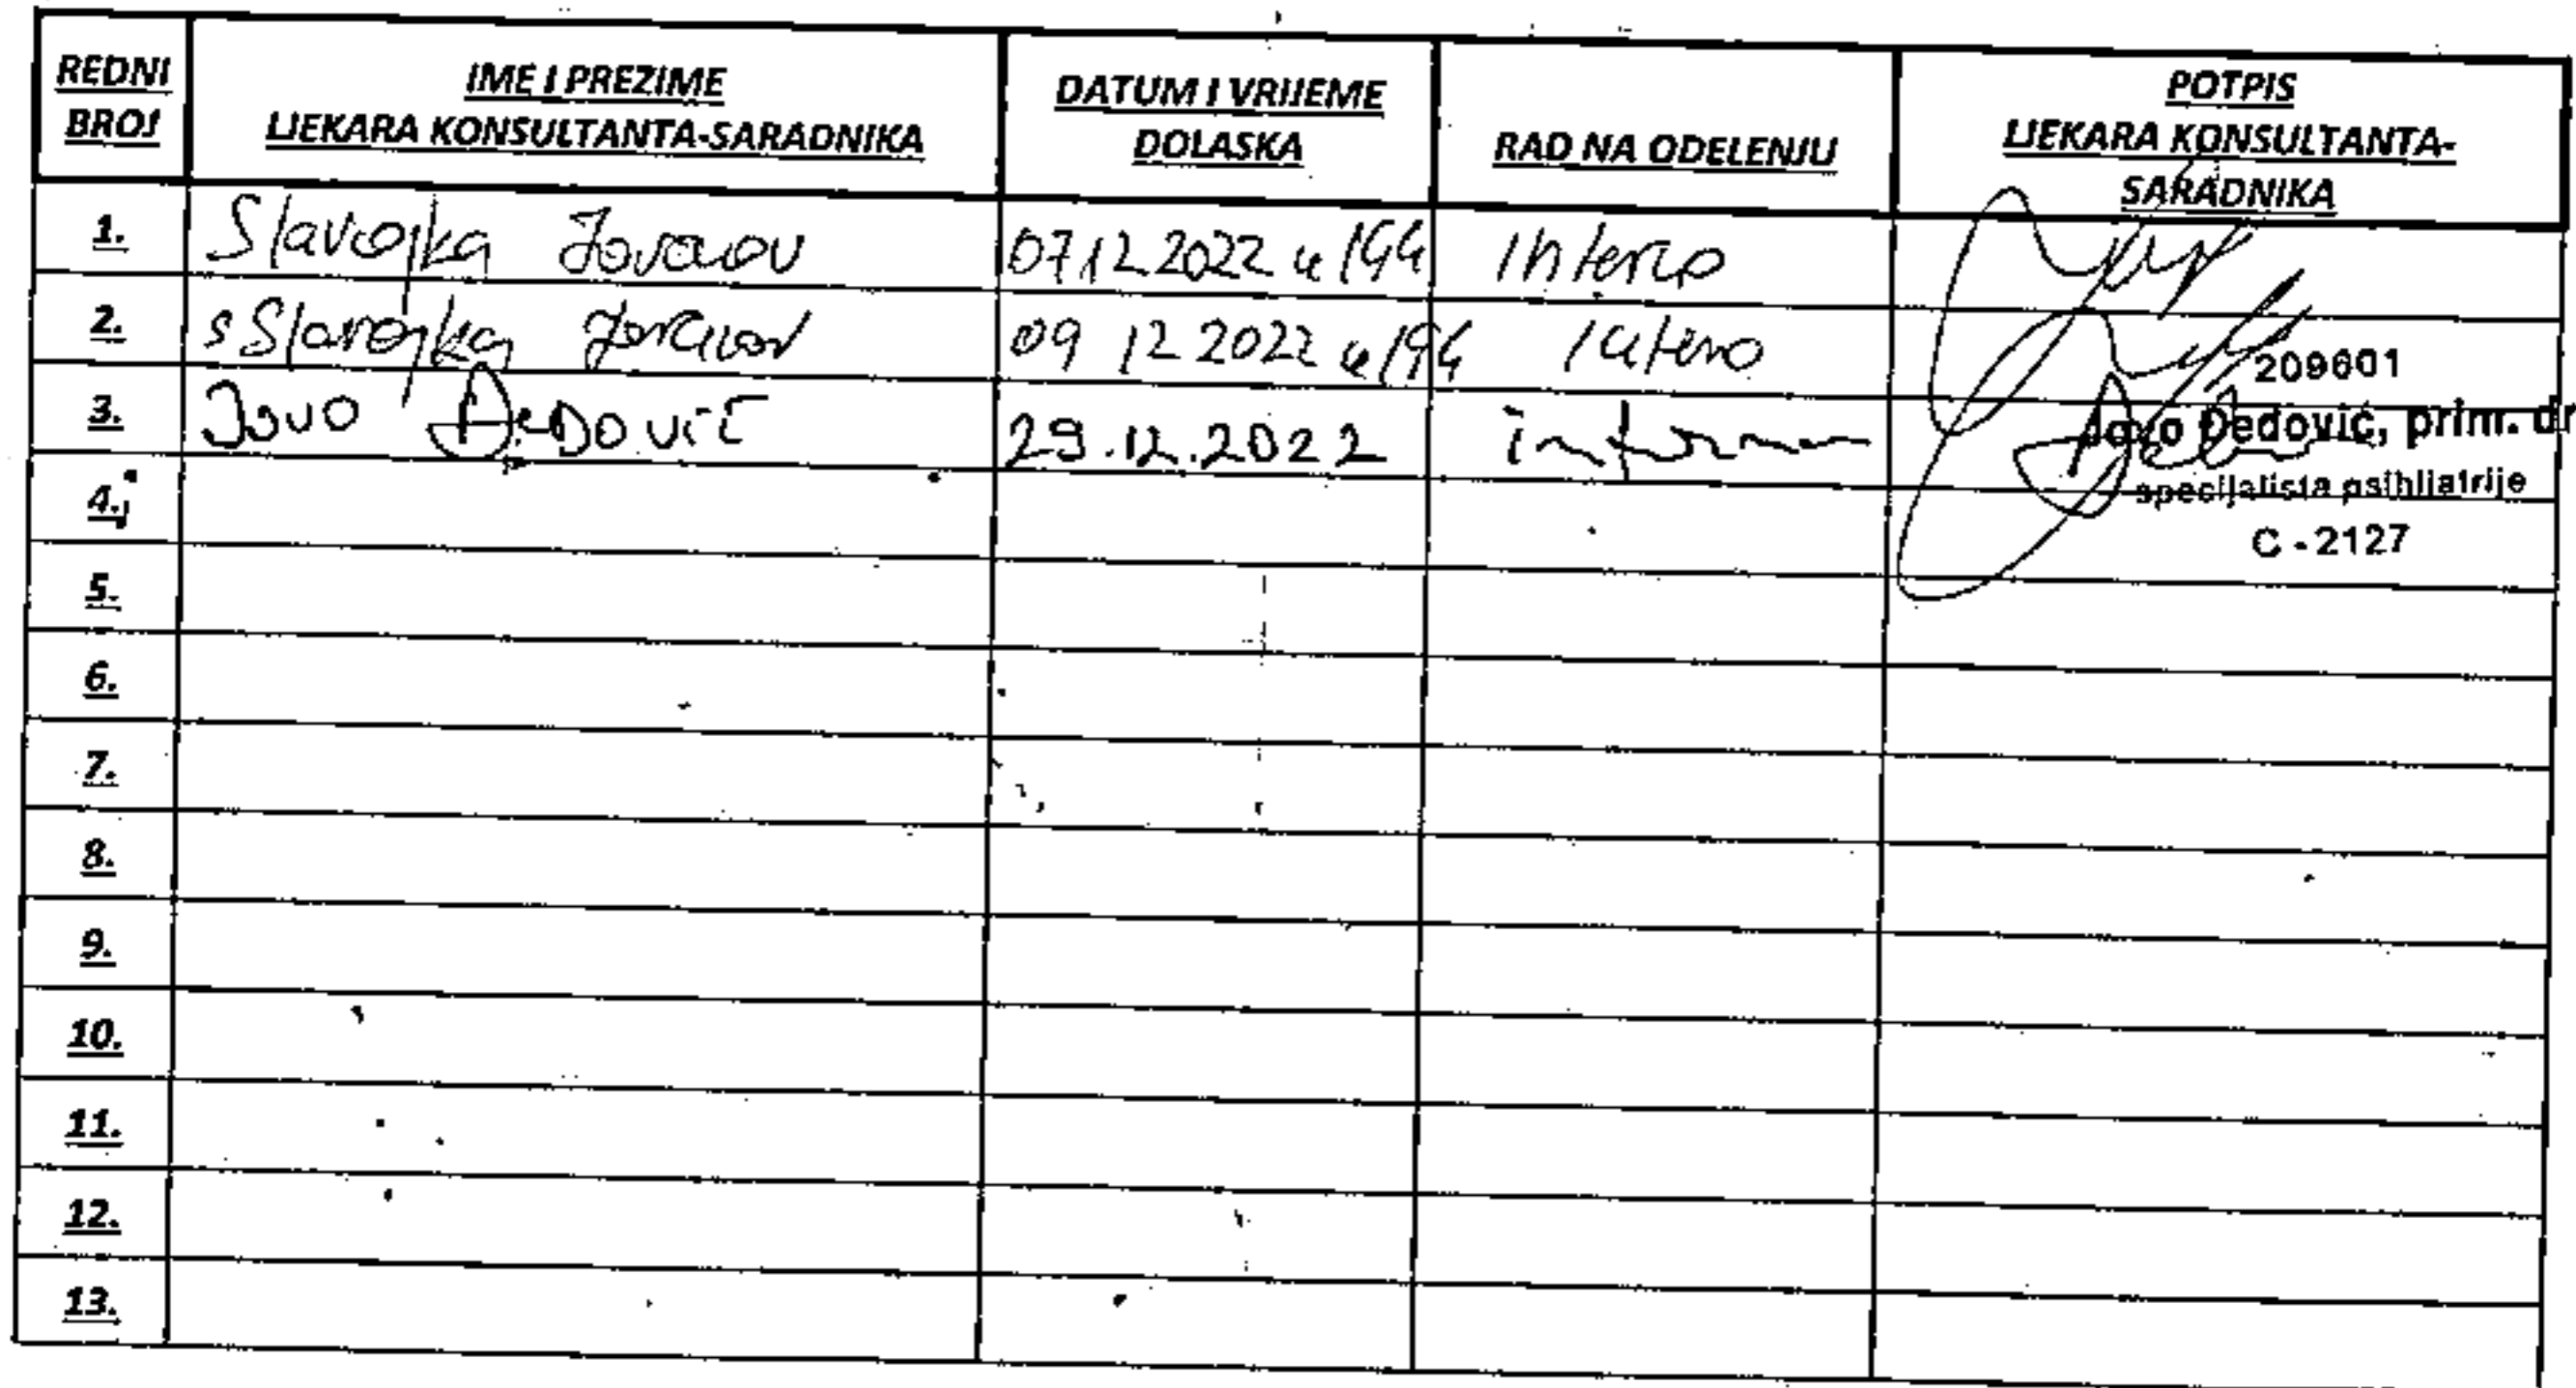 REDNI BROJ
IME I PREZIME
LJEKARA KONSULTANTA-SARADNIKA
DATUM I VRIJEME
DOLASKA
RAD NA ODELENJU
POTPIS
LJEKARA KONSULTANTA-
SARADNIKA
1. Slavojka Jovanov 07.12.2022 u Interno
2. Slavojka Jovanov 09 12 2022 u Interno
209601
3. Jovo Đedović 29.12.2022 interno
Jovo Đedović, prim. dr
specijalista psihijatrije
C - 2127
4.
5.
6.
7.
8.
9.
10.
11.
12.
13.